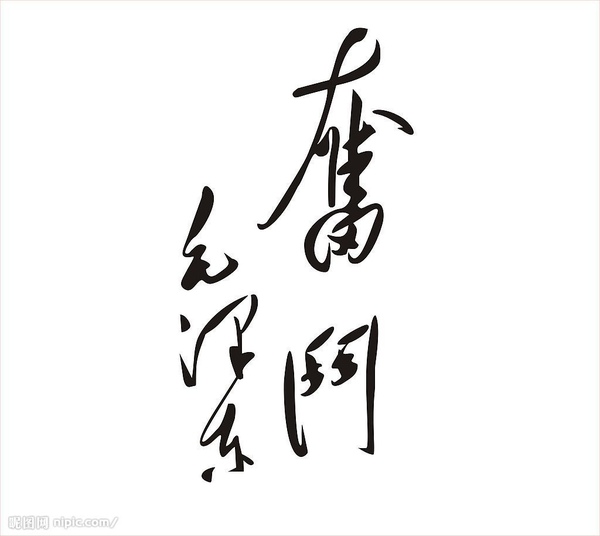 奮鬥
毛泽东
昵图网 nipic.com/